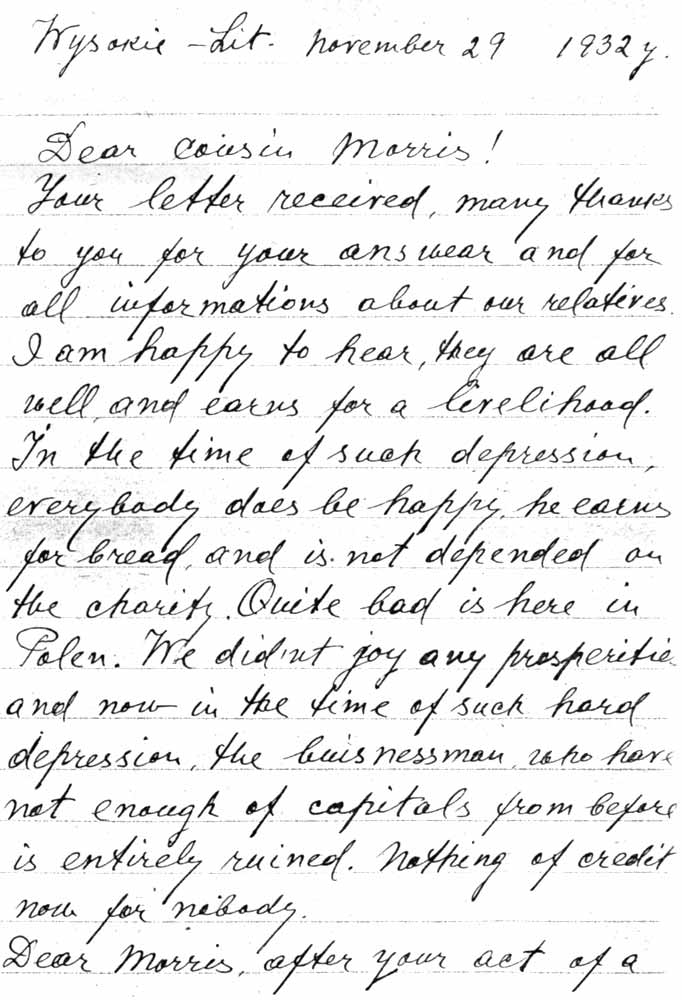 Wysokie - Lit. November 29 1932 y.
Dear cousin Morris!
Your letter received, many thanks
to you for your answear and for
all informations about our relatives.
I am happy to hear, they are all
well, and earns for a livelihood.
In the time of such depression,
everybody does be happy, he earns
for bread, and is not depended on
the charity. Quite bad is here in
Polen. We did'nt joy any prosperitie
and now in the time of such hard
depression, the buisnessman, who have
not enough of capitals from before
is entirely ruined. Nothing of credit
now for nobody.
Dear Morris, after your act of a